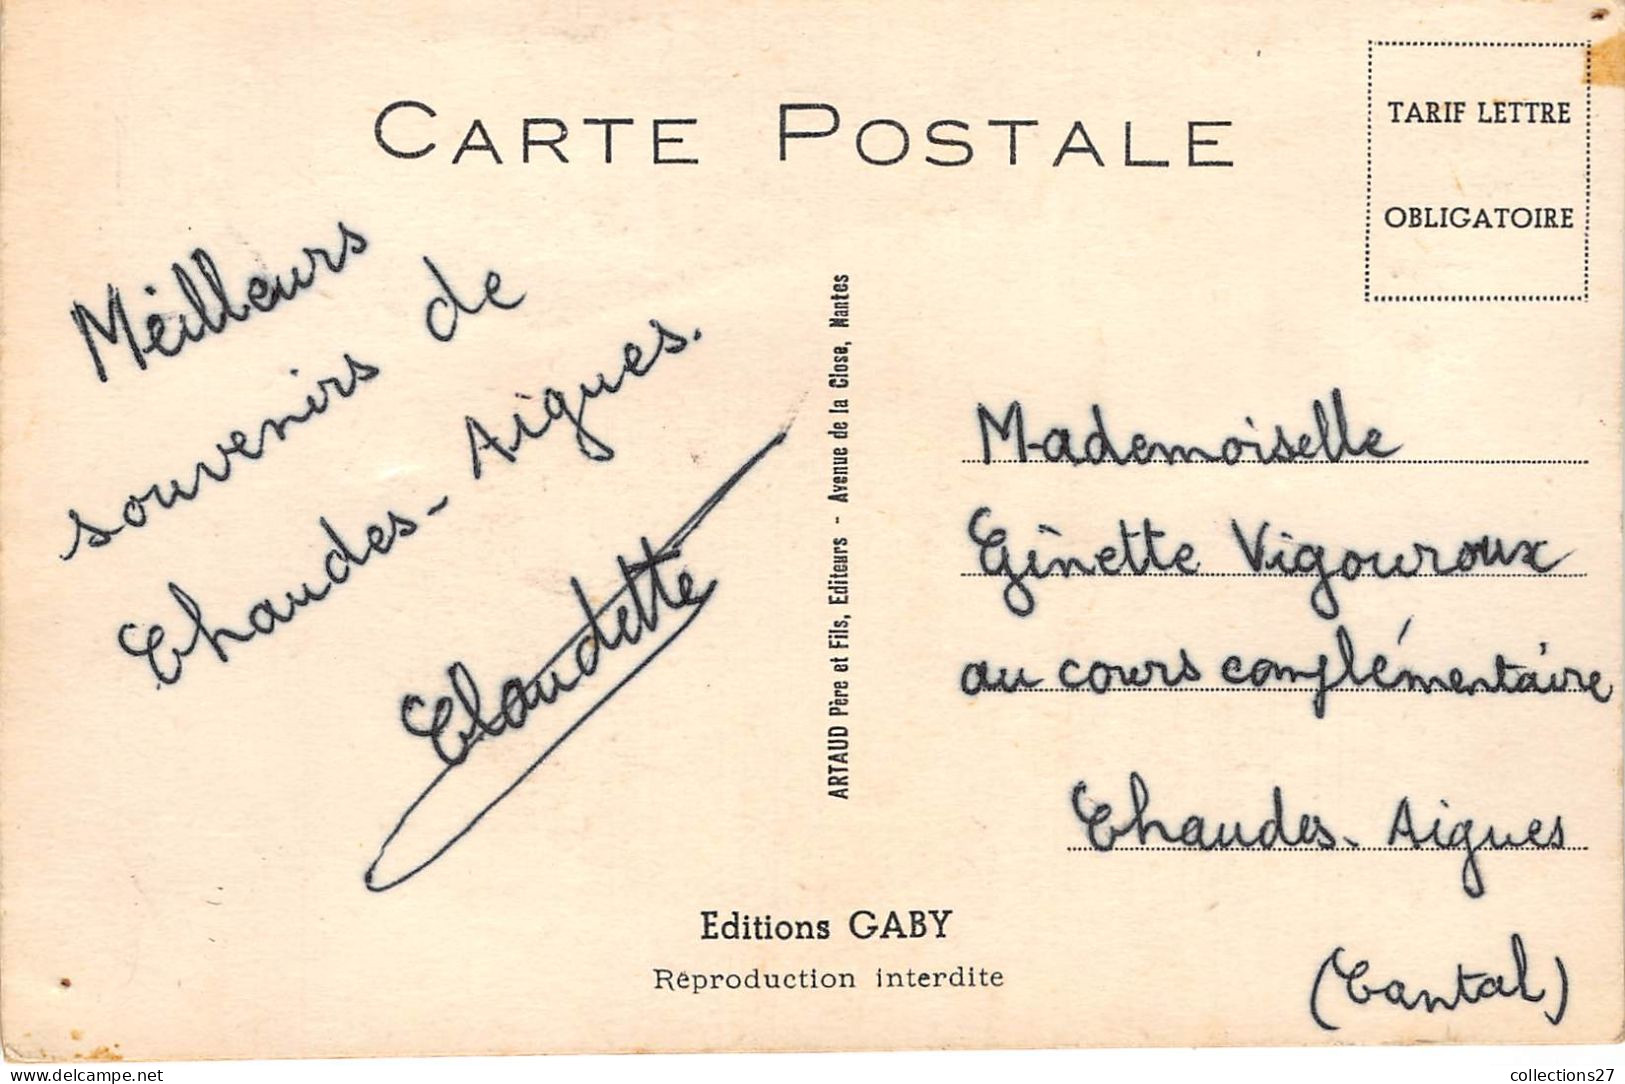 CARTE POSTALE
TARIF LETTRE
OBLIGATOIRE
Méilleurs
souvenirs de
Chaudes-Aigues.
Claudette
ARTAUD Père et Fils, Editeurs - Avenue de la Close, Nantes
Mademoiselle
Ginette Vigouroux
au cours complémentaire
Chaudes-Aigues
(Cantal)
Editions GABY
Reproduction interdite
collections27